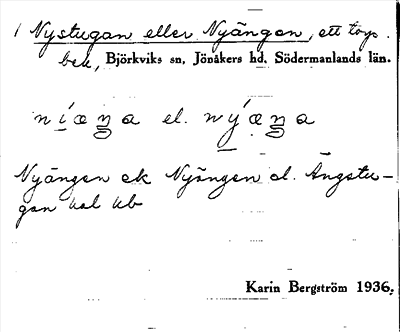 1 Nystugan eller Nyängen, ett torp.
bek, Björkviks sn, Jönåkers hd, Södermanlands län.
el.
Nyängen ek Nyängen el. Ängstu-
gan kal kb
Karin Bergström 1936.